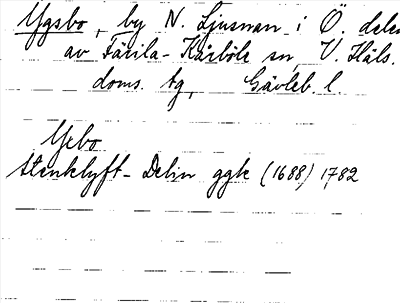 Ygsbo, by N. Ljusnan i Ö. delen
av Färila-Kårböle sn, V. Häls.
doms. tg, Gävleb. l.
Yebo
Stenklyft-Delin ggk (1688) 1782